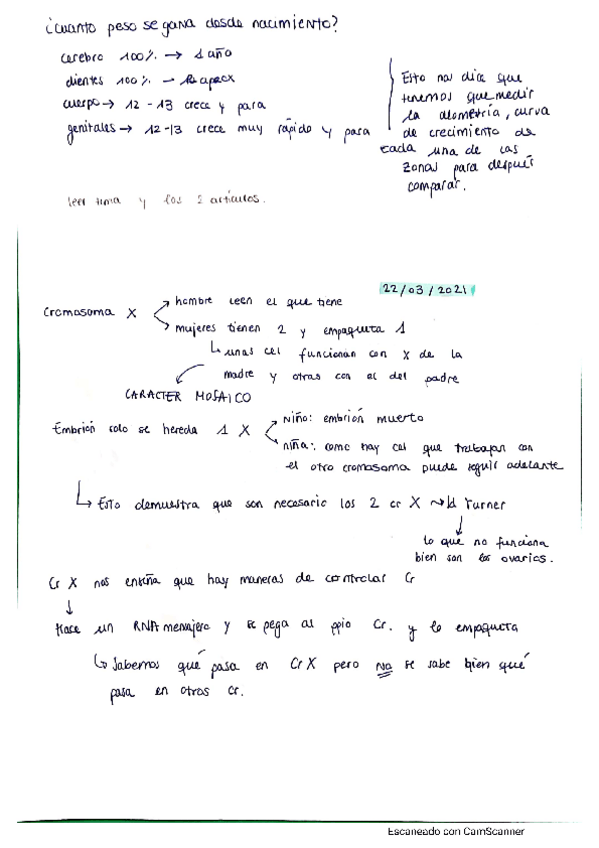 ¿cuanto peso se gana desde nacimiento?
cerebro 100% → 1 año
dientes 100% → 12 aprox
cuerpo → 12 - 13 crece y para
genitales → 12-13 crece muy rápido y para
Esto nos dice que
tenemos que medir
la alometría, curva
de crecimiento de
cada una de las
zonas para después
comparar.
leer tema y los 2 artículos.
22/03/2021
Cromosoma X
hombre leen el que tiene
mujeres tienen 2 y empaqueta 1
unas cel funcionan con X de la
madre y otras con al del padre
CARÁCTER MOSAICO
Embrión solo se hereda 1 X
Niño: embrión muerto
niña: como hay cel que trabajan con
el otro cromosoma puede seguir adelante
Esto demuestra que son necesario los 2 cr X Turner
lo que no funciona
bien son los ovarios.
Cr X nos enseña que hay maneras de controlar Cr
Hace un RNA mensajero y se pega al ppio Cr. y lo empaqueta
Sabemos qué pasa en Cr X pero no se sabe bien qué
pasa en otros cr.
Escaneado con CamScanner